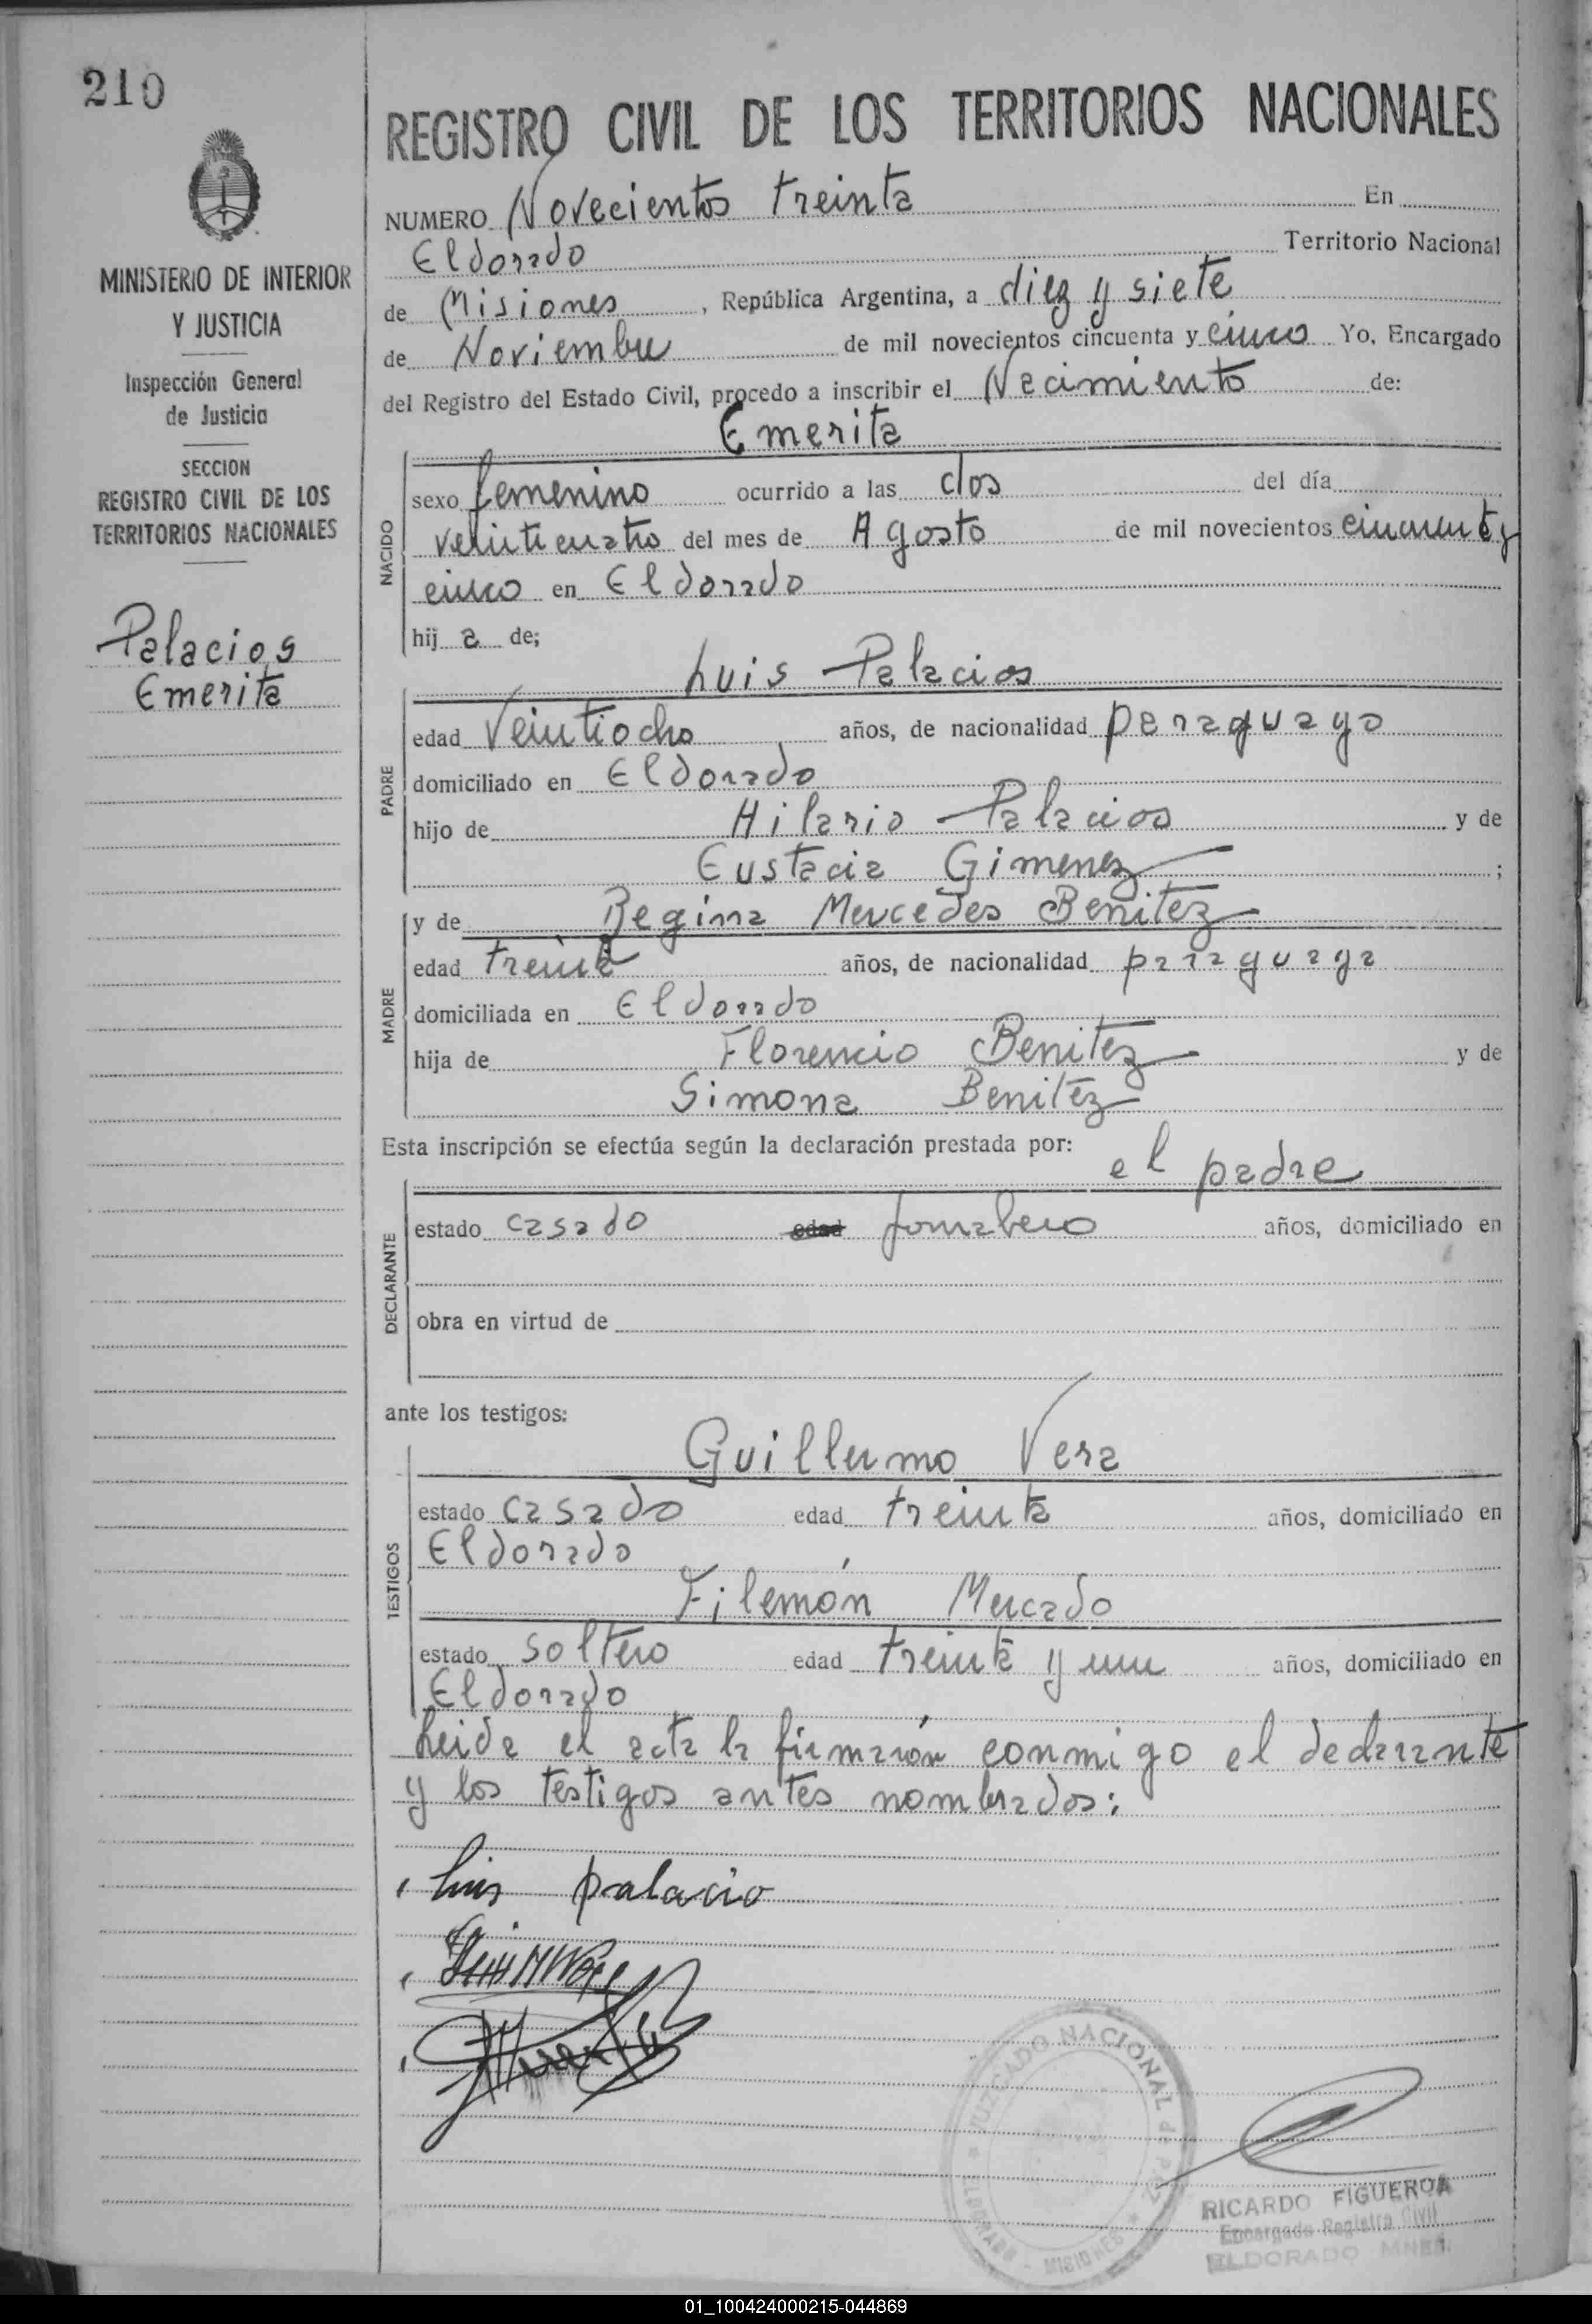 210
MINISTERIO DE INTERIOR
Y JUSTICIA
Inspección General
de Justicia
SECCION
REGISTRO CIVIL DE LOS
TERRITORIOS NACIONALES
Palacios
Emerita
REGISTRO CIVIL DE LOS TERRITORIOS NACIONALES
NUMERO Novecientos treinta En
Eldorado Territorio Nacional
de Misiones , República Argentina, a diez y siete
de Noviembre de mil novecientos cincuenta y cinco Yo, Encargado
del Registro del Estado Civil, procedo a inscribir el Nacimiento de:
Emerita
NACIDO
sexo femenino ocurrido a las dos del día
veinticuatro del mes de Agosto de mil novecientos cincuenta y
cinco en Eldorado
hij a de;
Luis Palacios
PADRE
edad Veintiocho años, de nacionalidad paraguaya
domiciliado en Eldorado
hijo de Hilario Palacios y de
Eustacia Gimenez ;
MADRE
y de Regina Mercedes Benitez
edad treinta años, de nacionalidad paraguaya
domiciliada en Eldorado
hija de Florencio Benitez y de
Simona Benitez
Esta inscripción se efectúa según la declaración prestada por:
el padre
DECLARANTE
estado casado edad Jornalero años, domiciliado en
obra en virtud de
ante los testigos:
Guillermo Vera
TESTIGOS
estado casado edad treinta años, domiciliado en
Eldorado
Filemón Mercado
estado soltero edad treinta y un años, domiciliado en
Eldorado
Leida el acta la firmarón conmigo el declarante
y los testigos antes nombrados:
Luis palacio
JUZGADO NACIONAL de PAZ
ELDORADO - MISIONES
RICARDO FIGUEROA
Encargado Registro Civil
ELDORADO MNES.
01_100424000215-044869